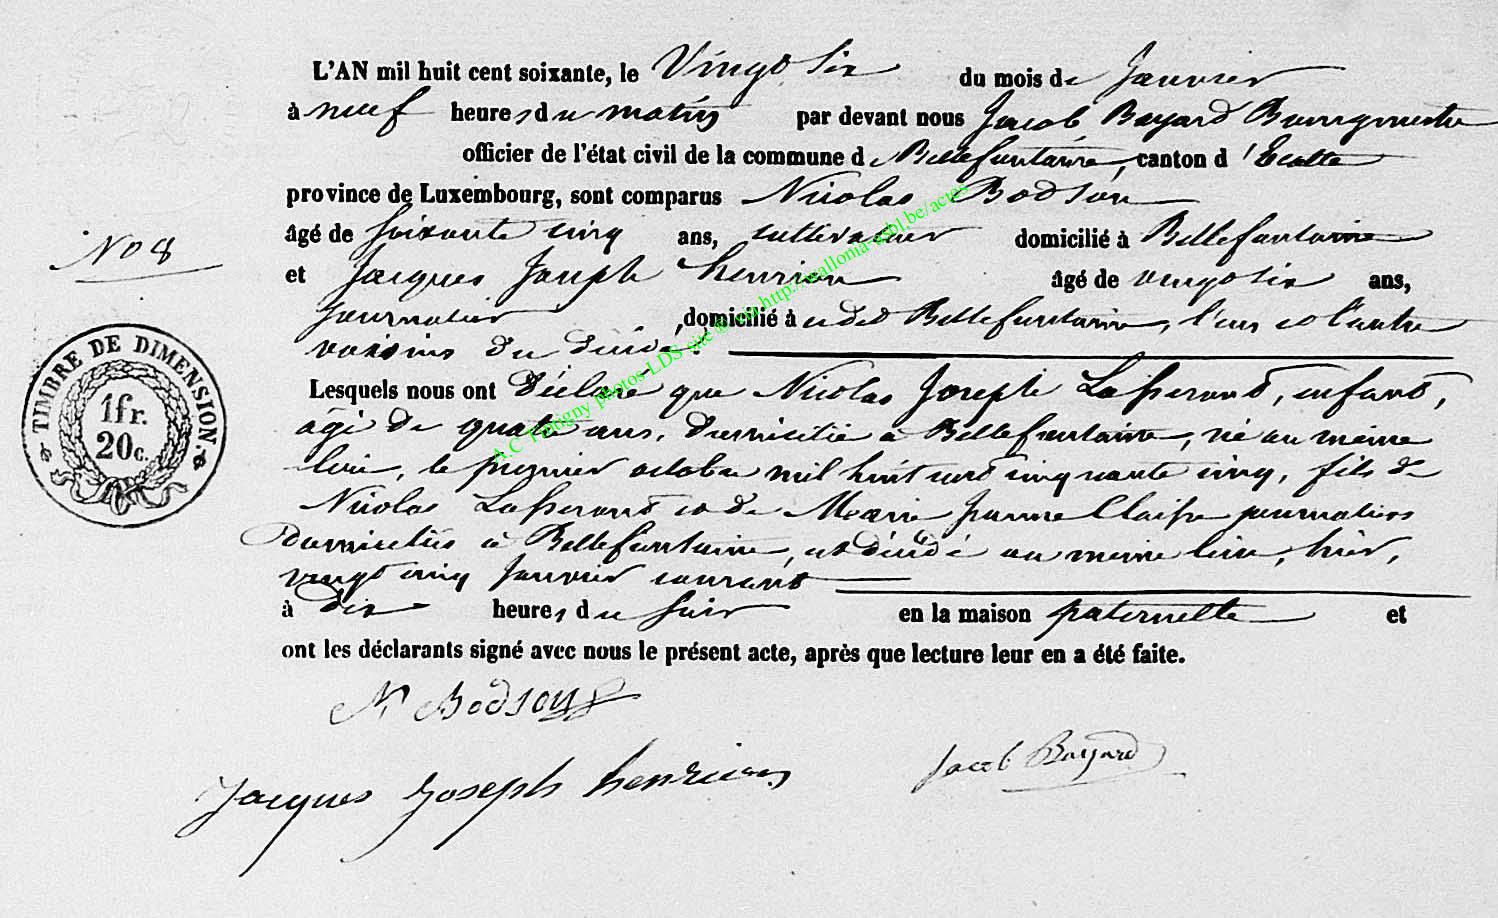 L'AN mil huit cent soixante, le Vingt six du mois de Janvier
à neuf heures du matin par devant nous Jacob Bayard Bourgmestre
officier de l'état civil de la commune de Bellefontaine, canton d'Etalle
province de Luxembourg, sont comparus Nicolas Bodson
âgé de soixante cinq ans, cultivateur domicilié à Bellefontaine
No 8
et Jacques Joseph henrion âgé de vingt six ans,
journalier domicilié à udit Bellefontaine, l'un et l'autre
voisins du décédé.
Lesquels nous ont Déclaré que Nicolas Joseph Lafserand, enfant,
âgé de quatre ans, domicilié à Bellefontaine, né au même
lieu, le premier octobre mil huit cent cinquante cinq, fils de
Nicolas Lafserand et de Marie Jeanne Claifse journaliers
domiciliés à Bellefontaine, est décédé au même lieu, hier,
vingt cinq Janvier courant
à dix heures du soir en la maison paternelle et
ont les déclarants signé avec nous le présent acte, après que lecture leur en a été faite.
N Bodson
Jacques Joseph henrion
Jacob Bayard
TIMBRE DE DIMENSION
1fr.
20c.
A.C Tintigny photos LDS site @ via http://wallonia-asbl.be/actes